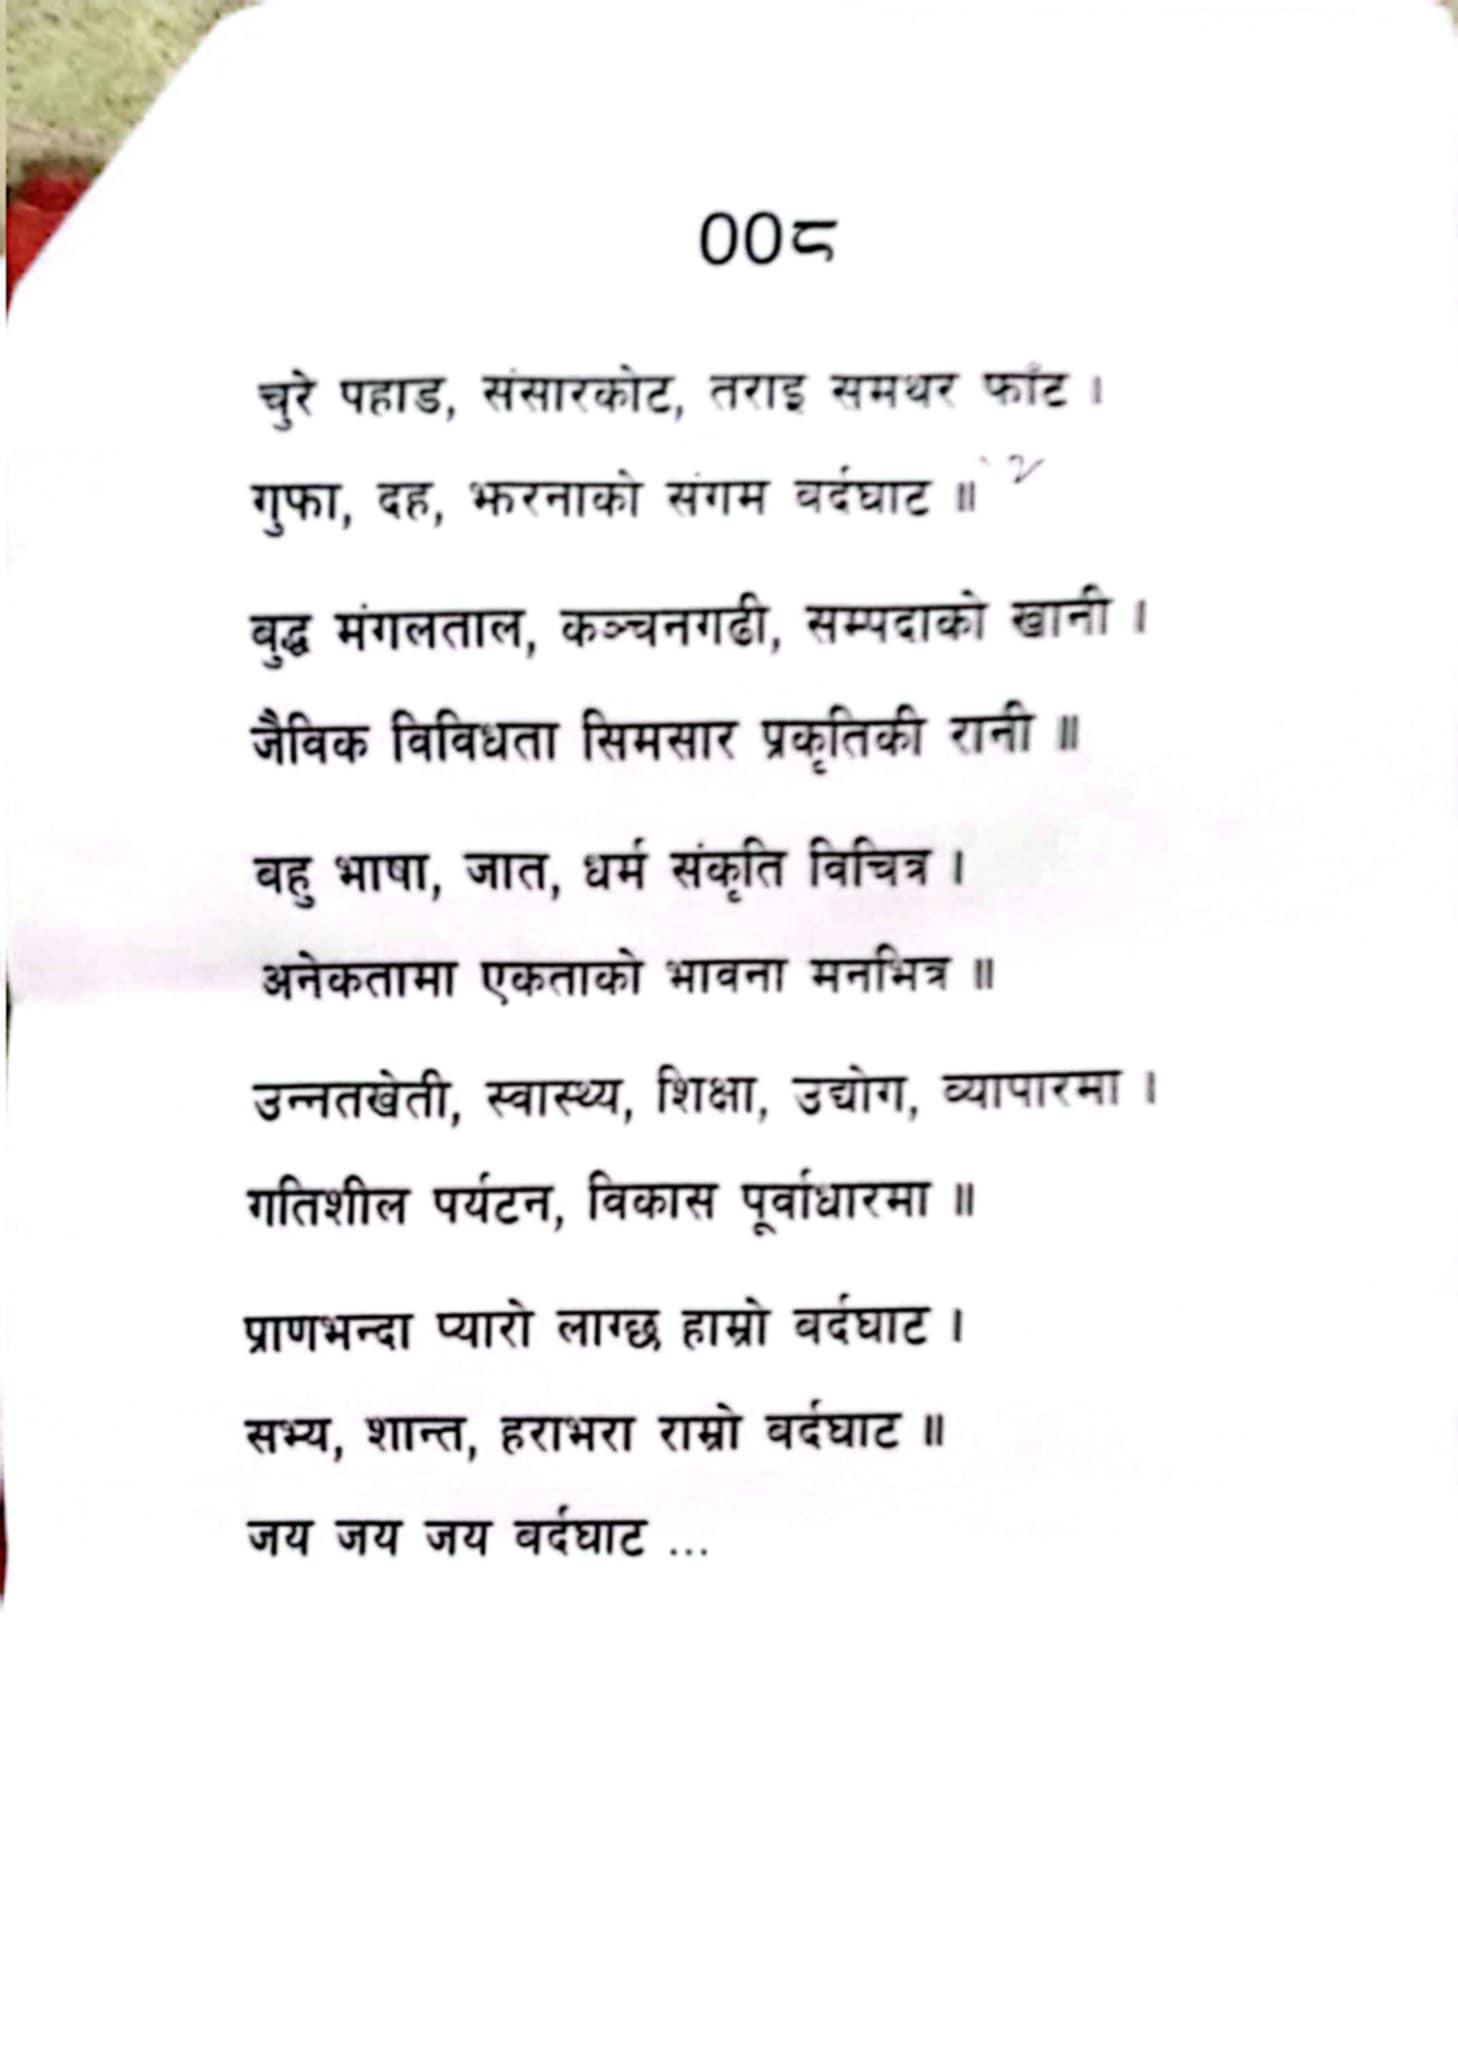 ००८
चुरे पहाड, संसारकोट, तराइ समथर फाँट ।
गुफा, दह, झरनाको संगम बर्दघाट ॥ २
बुद्ध मंगलताल, कञ्चनगढी, सम्पदाको खानी ।
जैविक विविधता सिमसार प्रकृतिकी रानी ॥
बहु भाषा, जात, धर्म संकृति विचित्र ।
अनेकतामा एकताको भावना मनभित्र ॥
उन्नतखेती, स्वास्थ्य, शिक्षा, उद्योग, व्यापारमा ।
गतिशील पर्यटन, विकास पूर्वाधारमा ॥
प्राणभन्दा प्यारो लाग्छ हाम्रो बर्दघाट ।
सभ्य, शान्त, हराभरा राम्रो बर्दघाट ॥
जय जय जय बर्दघाट ...